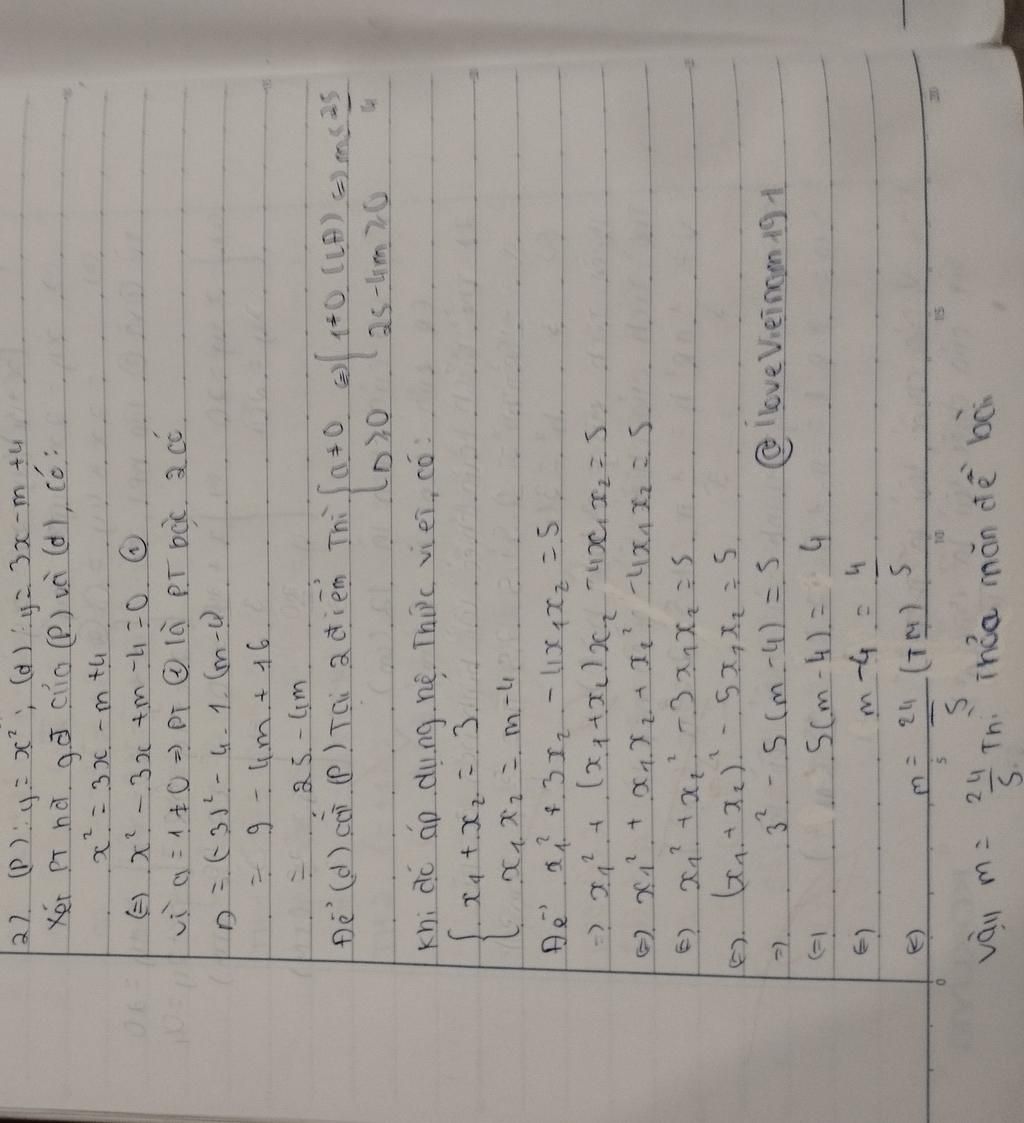 2) (P): y = x², (d): y = 3x - m + 4
Xét PT hđ gđ của (P) và (d), có:
x² = 3x - m + 4
(=) x² - 3x + m - 4 = 0 ①
Vì a = 1 ≠ 0 => PT ① là PT bậc 2 có
Δ = (-3)² - 4.1.(m-4)
= 9 - 4m + 16
= 25 - 4m
Để (d) cắt (P) tại 2 điểm thì { a ≠ 0 (=) { 1 ≠ 0 (LĐ) => m ≤ 25/4
Δ ≥ 0 25 - 4m ≥ 0
Khi đó áp dụng hệ thức viet, có:
{ x₁ + x₂ = 3
x₁x₂ = m - 4
Để x₁² + 3x₂ - 4x₁x₂ = 5
=) x₁² + (x₁ + x₂)x₂ - 4x₁x₂ = 5
(=) x₁² + x₁x₂ + x₂² - 4x₁x₂ = 5
(=) x₁² + x₂² - 3x₁x₂ = 5
(=) (x₁ + x₂)² - 5x₁x₂ = 5
=) 3² - 5(m - 4) = 5 @iloveVietnam191
(=) 5(m - 4) = 4
(=) m - 4 = 4/5
(=) m = 24/5 (TM)
0 5 10 15 20
Vậy m = 24/5 thì thỏa mãn đề bài